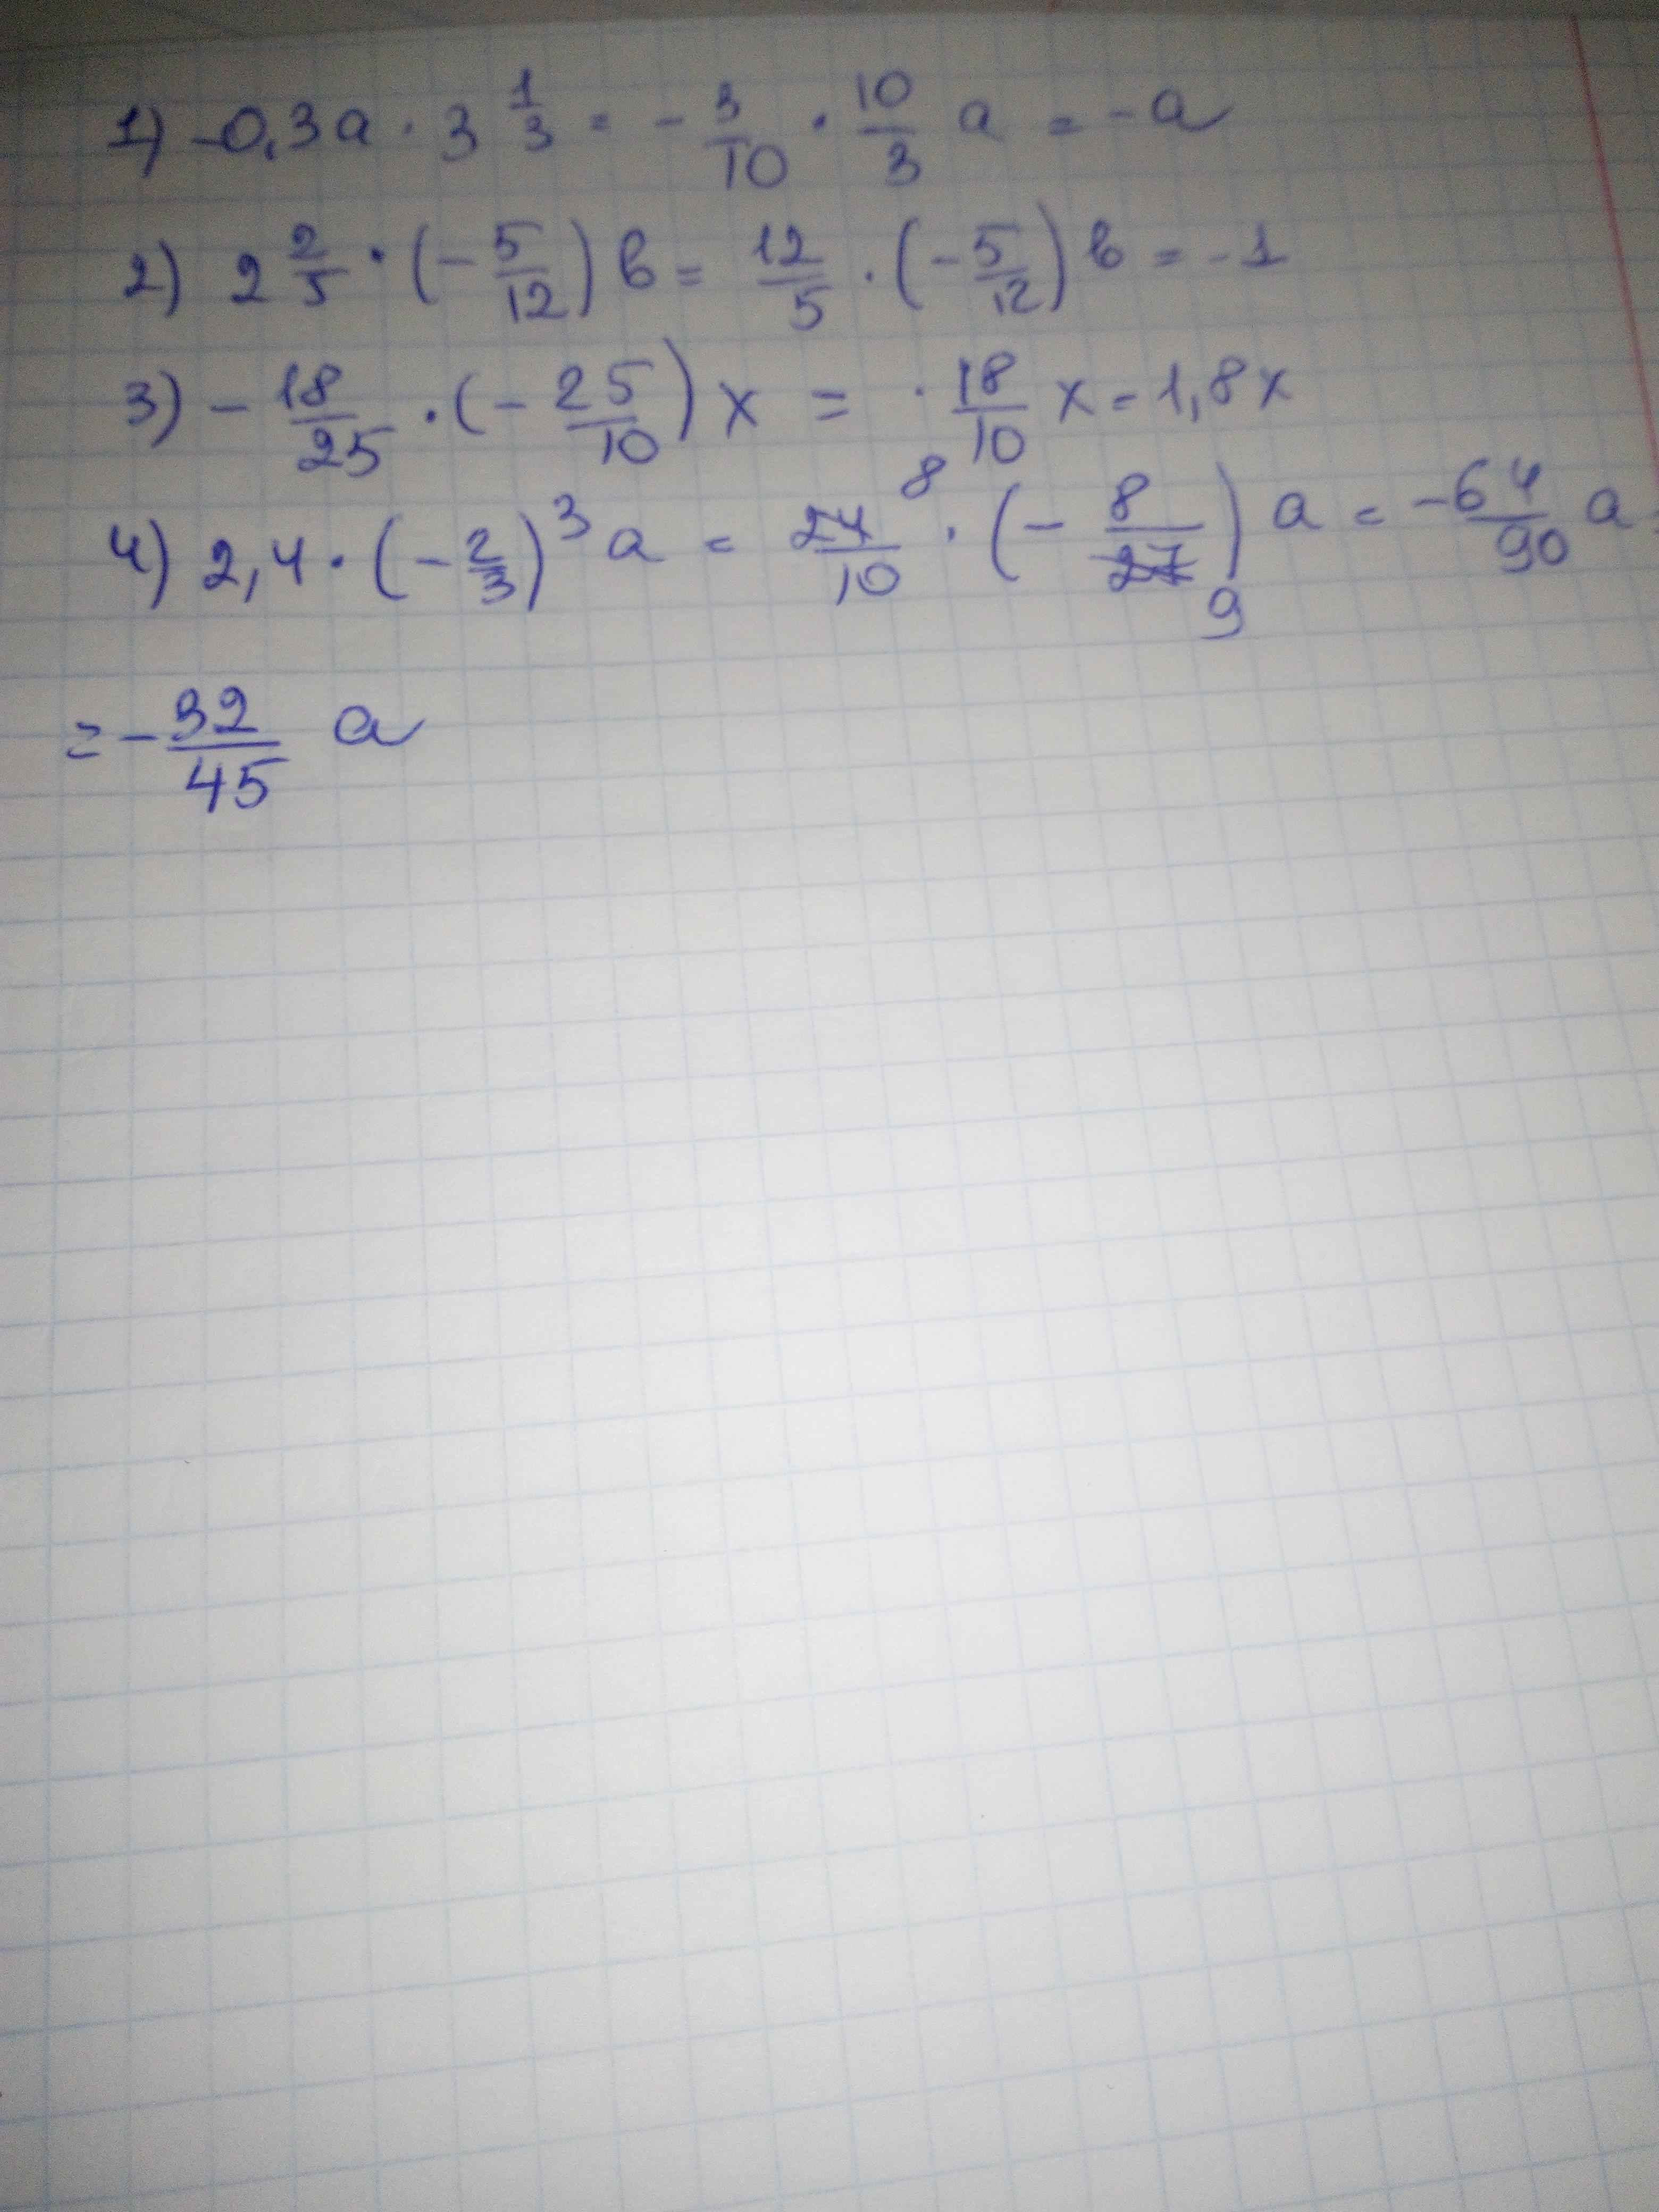 1) -0,3a · 3 1/3 = - 3/10 · 10/3 a = -a
2) 2 2/5 · (- 5/12) b = 12/5 · (- 5/12) b = -1
3) - 18/25 · (- 25/10) x = · 18/10 x = 1,8x
4) 2,4 · (- 2/3)³ a = 24/10 8 · (- 8/27) 9 a = - 64/90 a =
= - 32/45 a